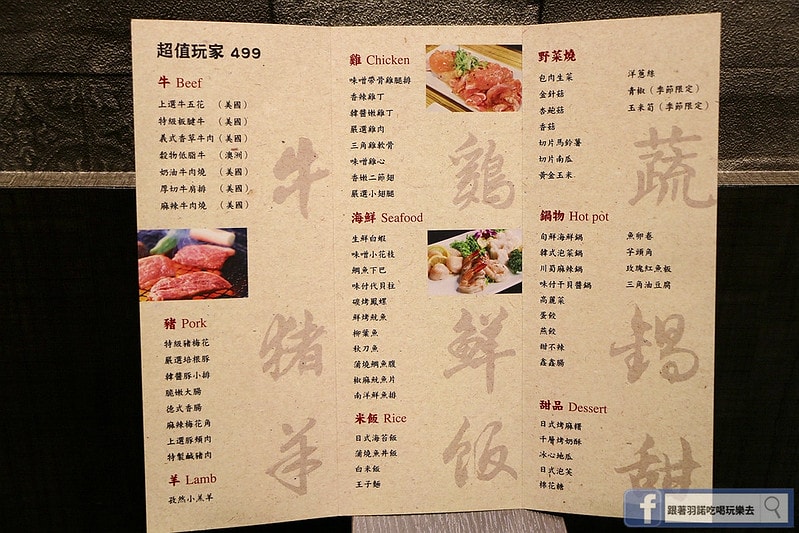 超值玩家 499
牛 Beef
上選牛五花 （美國）
特級板腱牛 （美國）
義式香草牛肉（美國）
穀物低脂牛 （澳洲）
奶油牛肉燒 （美國）
厚切牛肩排 （美國）
麻辣牛肉燒 （美國）
牛
豬 Pork
特級豬梅花
嚴選培根豚
韓醬豚小排
脆嫩大腸
德式香腸
麻辣梅花角
上選豚頰肉
特製鹹豬肉
豬
羊 Lamb
孜然小羔羊
羊
雞 Chicken
味噌帶骨雞腿排
香辣雞丁
韓醬嫩雞丁
嚴選雞肉
三角雞軟骨
味噌雞心
香嫩二節翅
嚴選小翅腿
鷄
海鮮 Seafood
生鮮白蝦
味噌小花枝
鯛魚下巴
味付代貝拉
碳烤鳳螺
鮮烤魷魚
柳葉魚
秋刀魚
蒲燒鯛魚腹
椒麻魷魚片
南洋鮮魚排
鮮
米飯 Rice
日式海苔飯
蒲燒魚丼飯
白米飯
王子麵
飯
野菜燒
包肉生菜
金針菇
杏鮑菇
香菇
切片馬鈴薯
切片南瓜
黃金玉米
洋蔥絲
青椒（季節限定）
玉米筍（季節限定）
蔬
鍋物 Hot pot
旬鮮海鮮鍋
韓式泡菜鍋
川蜀麻辣鍋
味付干貝醬鍋
高麗菜
蛋餃
燕餃
甜不辣
鑫鑫腸
魚卵卷
芋頭角
玫瑰紅魚板
三角油豆腐
鍋
甜品 Dessert
日式烤麻糬
千層烤奶酥
冰心地瓜
日式泡芙
棉花糖
甜
跟著羽諾吃喝玩樂去